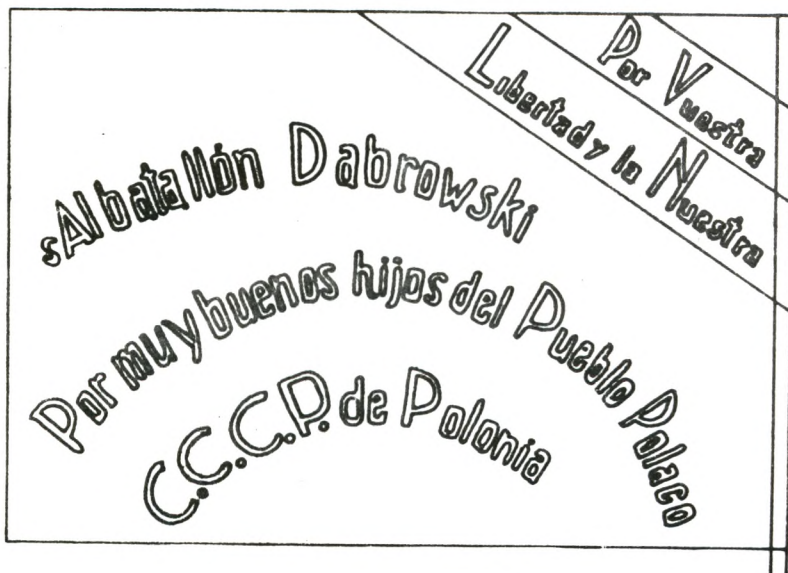 Por Vuestra
Libertad y la Nuestra
sAl batallón Dabrowski
Por muy buenos hijos del Pueblo Polaco
C.C.C.P. de Polonia